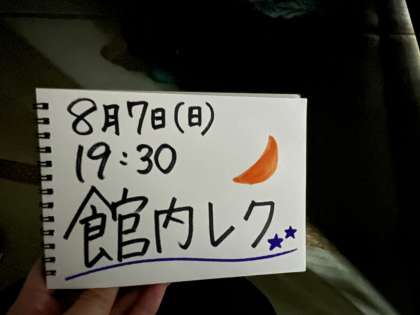 8月7日(日)
19:30
館内レク